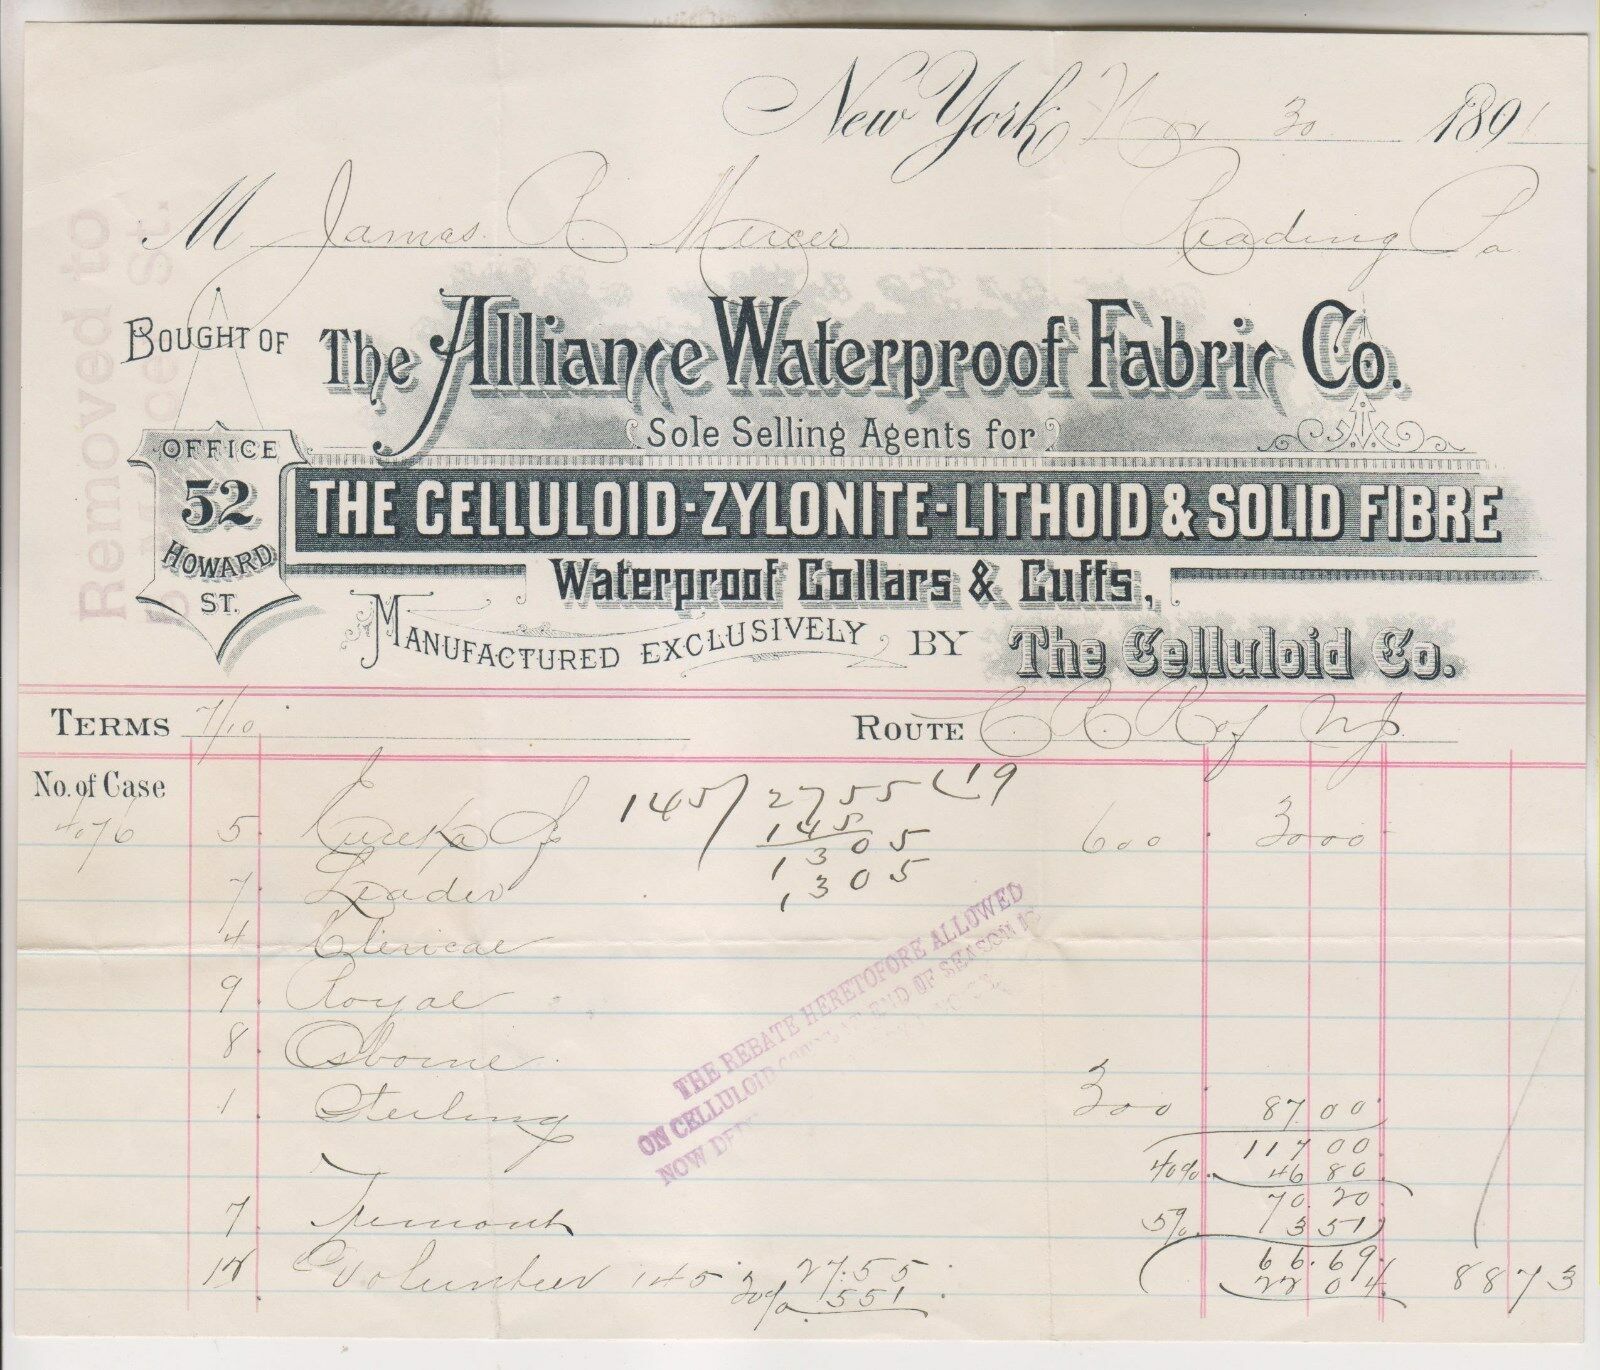 New York Nov 30 1891
M James R. Mercer Reading Pa
Removed to
St.
BOUGHT OF The Alliance Waterproof Fabric Co.
Sole Selling Agents for
OFFICE
52
HOWARD
ST.
THE CELLULOID-ZYLONITE-LITHOID & SOLID FIBRE
Waterproof Collars & Cuffs,
MANUFACTURED EXCLUSIVELY BY The Celluloid Co.
TERMS 7/10 ROUTE C R R of N J.
No. of Case
145/2755(19
145
1305
1305
4076 5 Eureka 600 3000
7 Leader
4 Clerical
9 Royal
8 Osborne
1 Sterling 300 87 00
117 00
40% 46 80
70 20
7 Tremont 5% 3 51
66.69
Volunteer 145 27.55 22 04 8873
20% 5 51
THE REBATE HERETOFORE ALLOWED
ON CELLULOID GOODS AT END OF SEASON IS
NOW